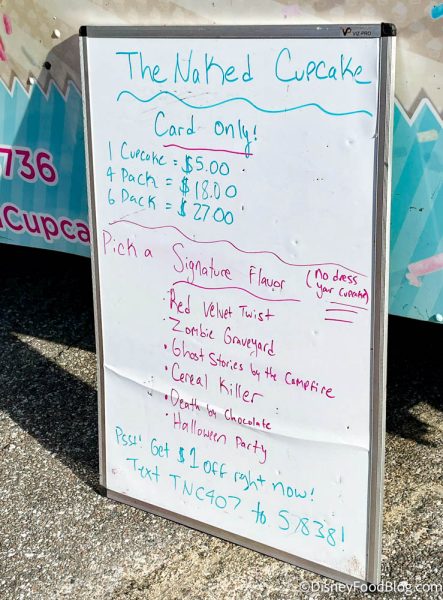 VIZ-PRO
The Naked Cupcake
Card only!
1 Cupcake = $5.00
4 Pack = $18.00
6 Pack = $27.00
Pick a Signature Flavor (No dress your cupcake)
· Red Velvet Twist
· Zombie Graveyard
· Ghost Stories by the Campfire
· Cereal Killer
· Death by Chocolate
· Halloween Party
Psst! Get $1 off right now!
Text TNC407 to 578381
736
Cupca
©DisneyFoodBlog.com